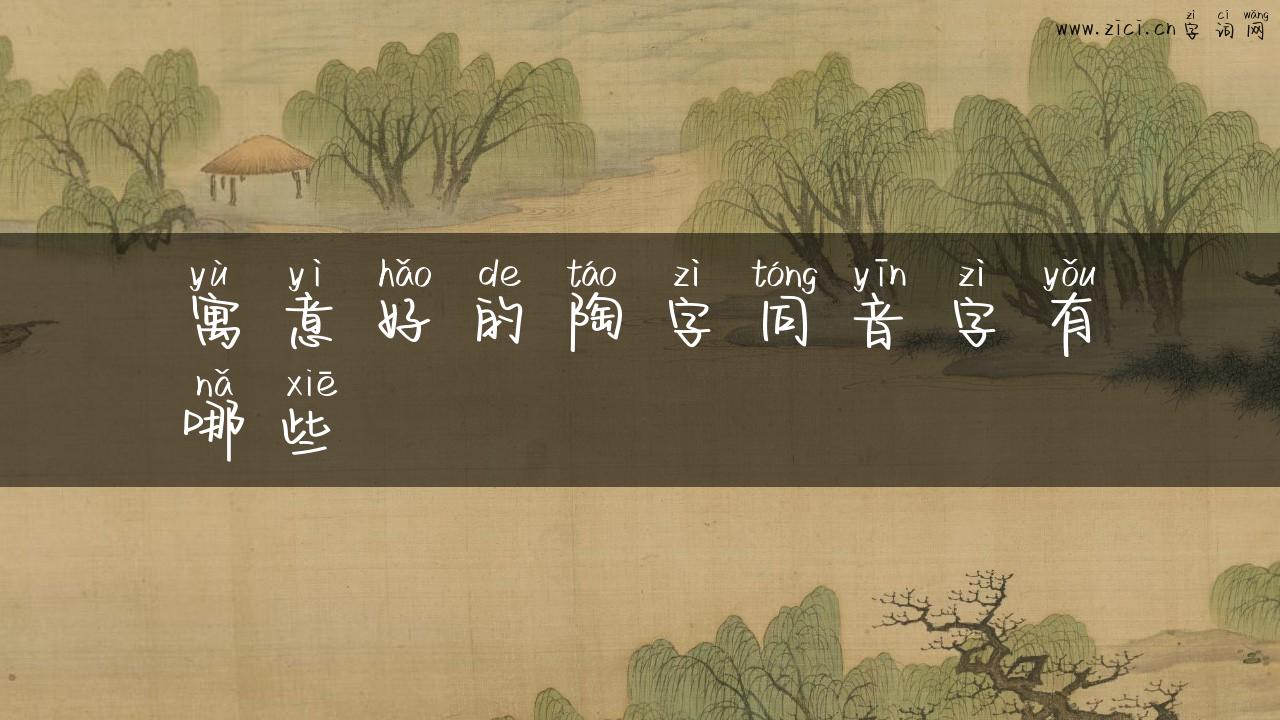 zì cí wǎng
www.zici.cn 字 词 网
yù yì hǎo de táo zì tóng yīn zì yǒu
寓 意 好 的 陶 字 同 音 字 有
nǎ xiē
哪 些